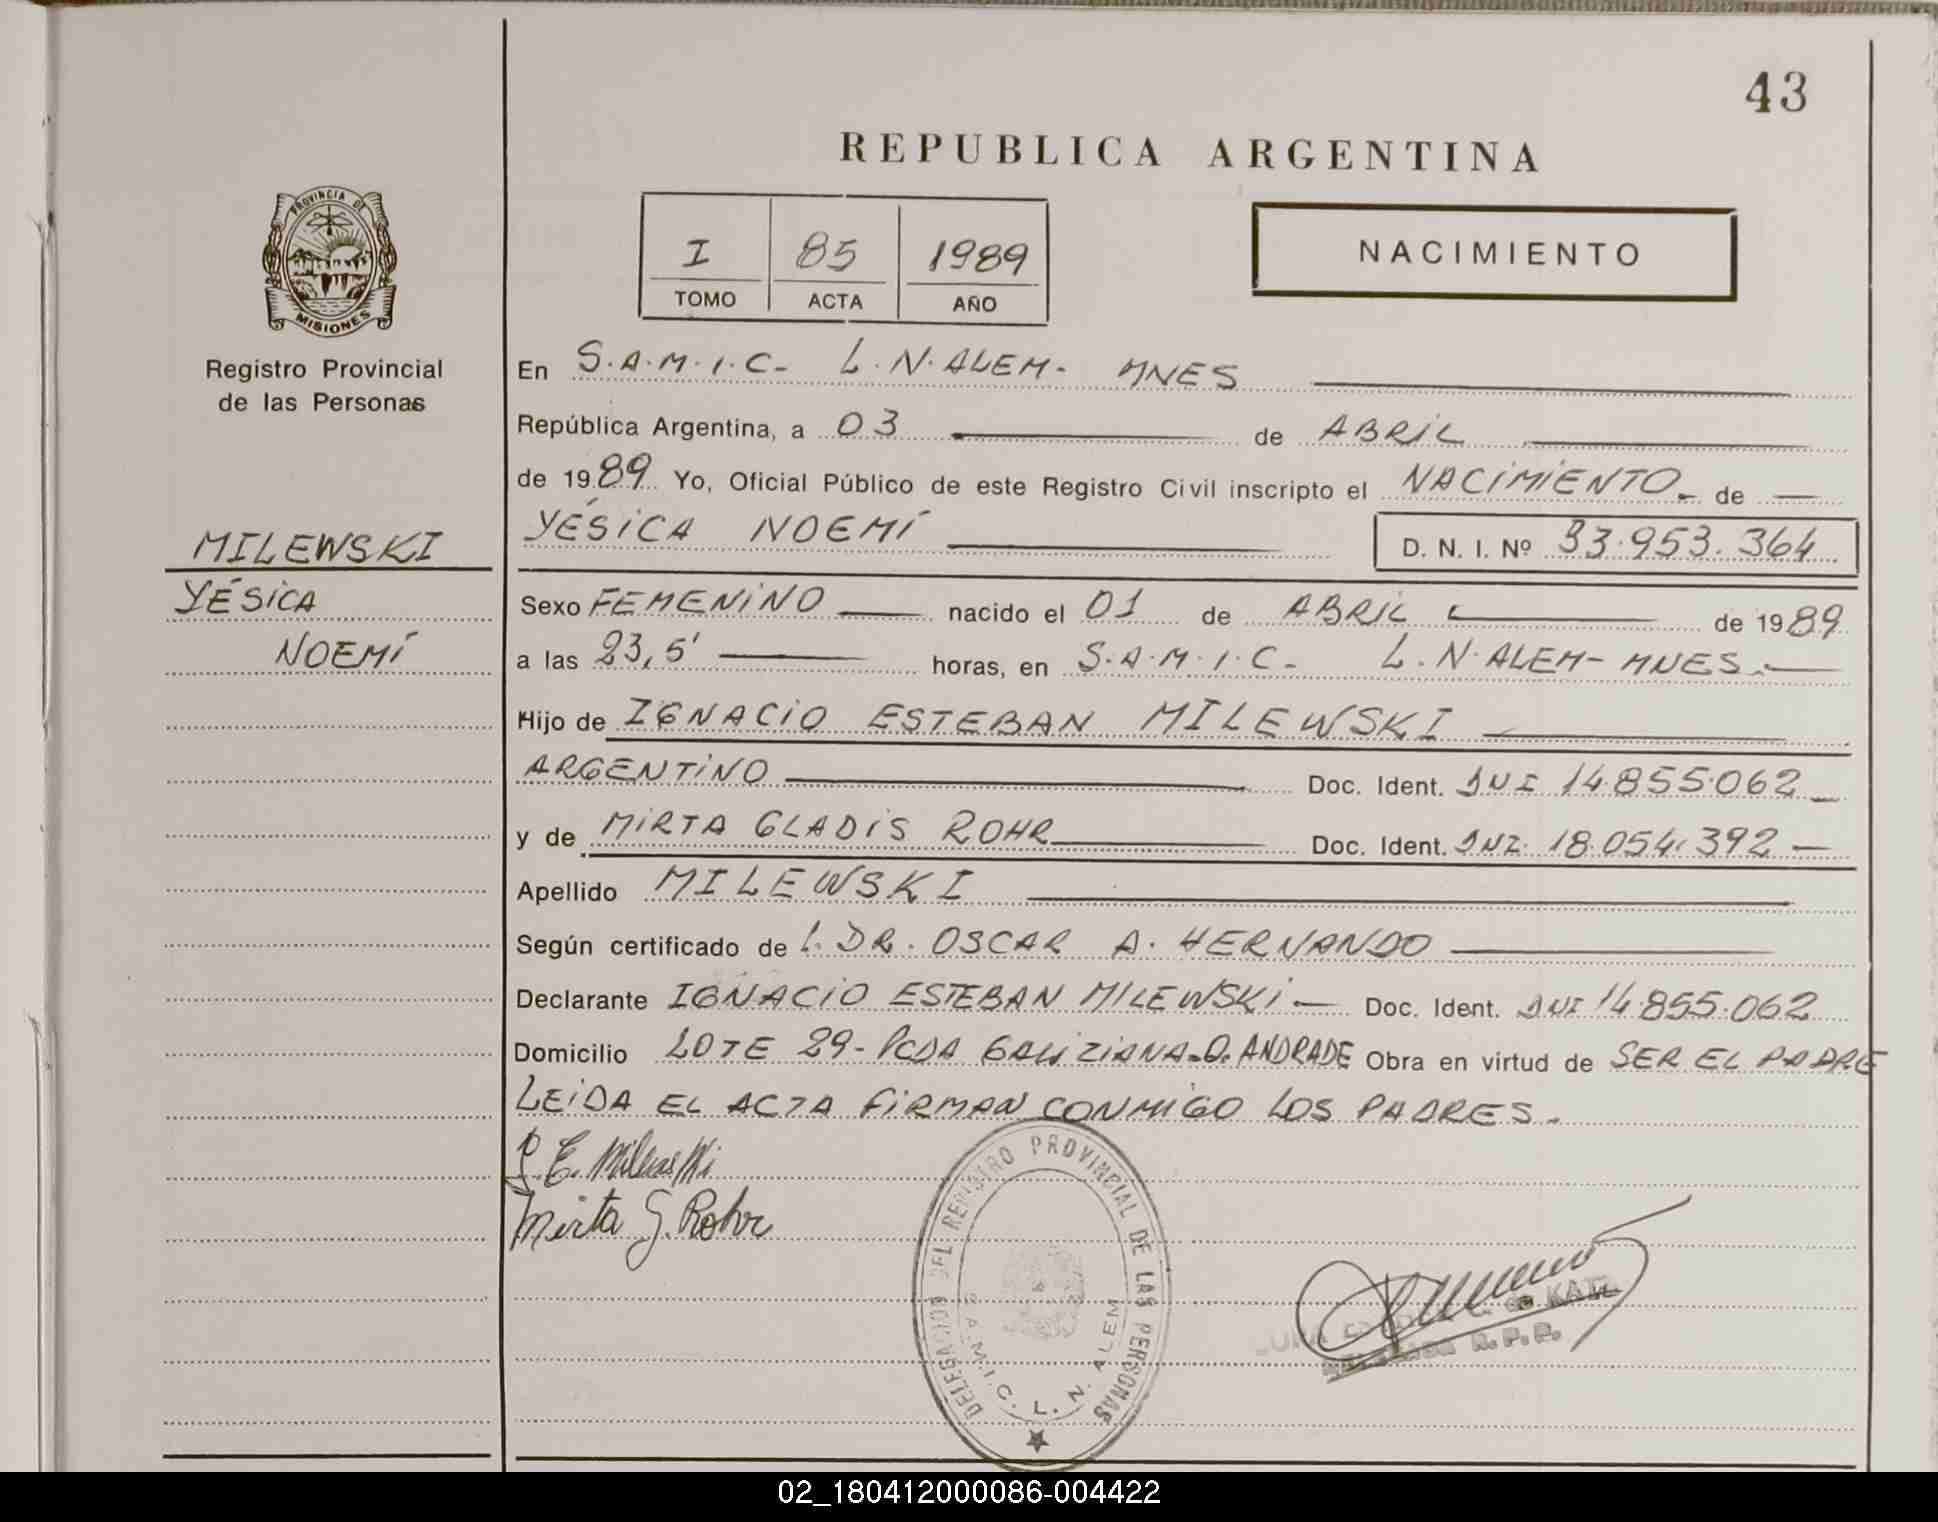 43
REPUBLICA ARGENTINA
PROVINCIA DE
MISIONES
I 85 1989
TOMO ACTA AÑO
NACIMIENTO
Registro Provincial
de las Personas
En S.A.M.I.C- L.N.ALEM- MNES
República Argentina, a 03 de ABRIL
de 1989 Yo, Oficial Público de este Registro Civil inscripto el NACIMIENTO.- de
MILEWSKI
YÉSICA NOEMÍ D. N. I. Nº 33.953.364
YÉSICA
NOEMÍ
Sexo FEMENINO nacido el 01 de ABRIL de 1989
a las 23,5' horas, en S.A.M.I.C- L.N.ALEM- MNES.-
Hijo de IGNACIO ESTEBAN MILEWSKI
ARGENTINO Doc. Ident. DNI 14.855.062
y de MIRTA GLADIS ROHR Doc. Ident. DNI. 18.054.392
Apellido MILEWSKI
Según certificado de L. DR. OSCAR A. HERNANDO
Declarante IGNACIO ESTEBAN MILEWSKI Doc. Ident. DNI 14.855.062
Domicilio LOTE 29- PCDA GALIZIANA-O. ANDRADE Obra en virtud de SER EL PADRE
LEIDA EL ACTA FIRMAN CONMIGO LOS PADRES.-
E. Milewski
Mirta G. Rohr
DELEGACION DEL REGISTRO PROVINCIAL DE LAS PERSONAS
S.A.M.I.C. L. N. ALEM
R.P.P.
02_180412000086-004422